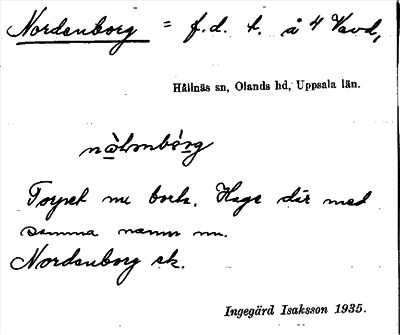 Nordenborg = f.d. t. å 4 Vavd,
Hållnäs sn, Olands hd, Uppsala län.
Torpet nu bork. Hage där med
samma namn nu.
Nordenborg ek.
Ingegärd Isaksson 1935.